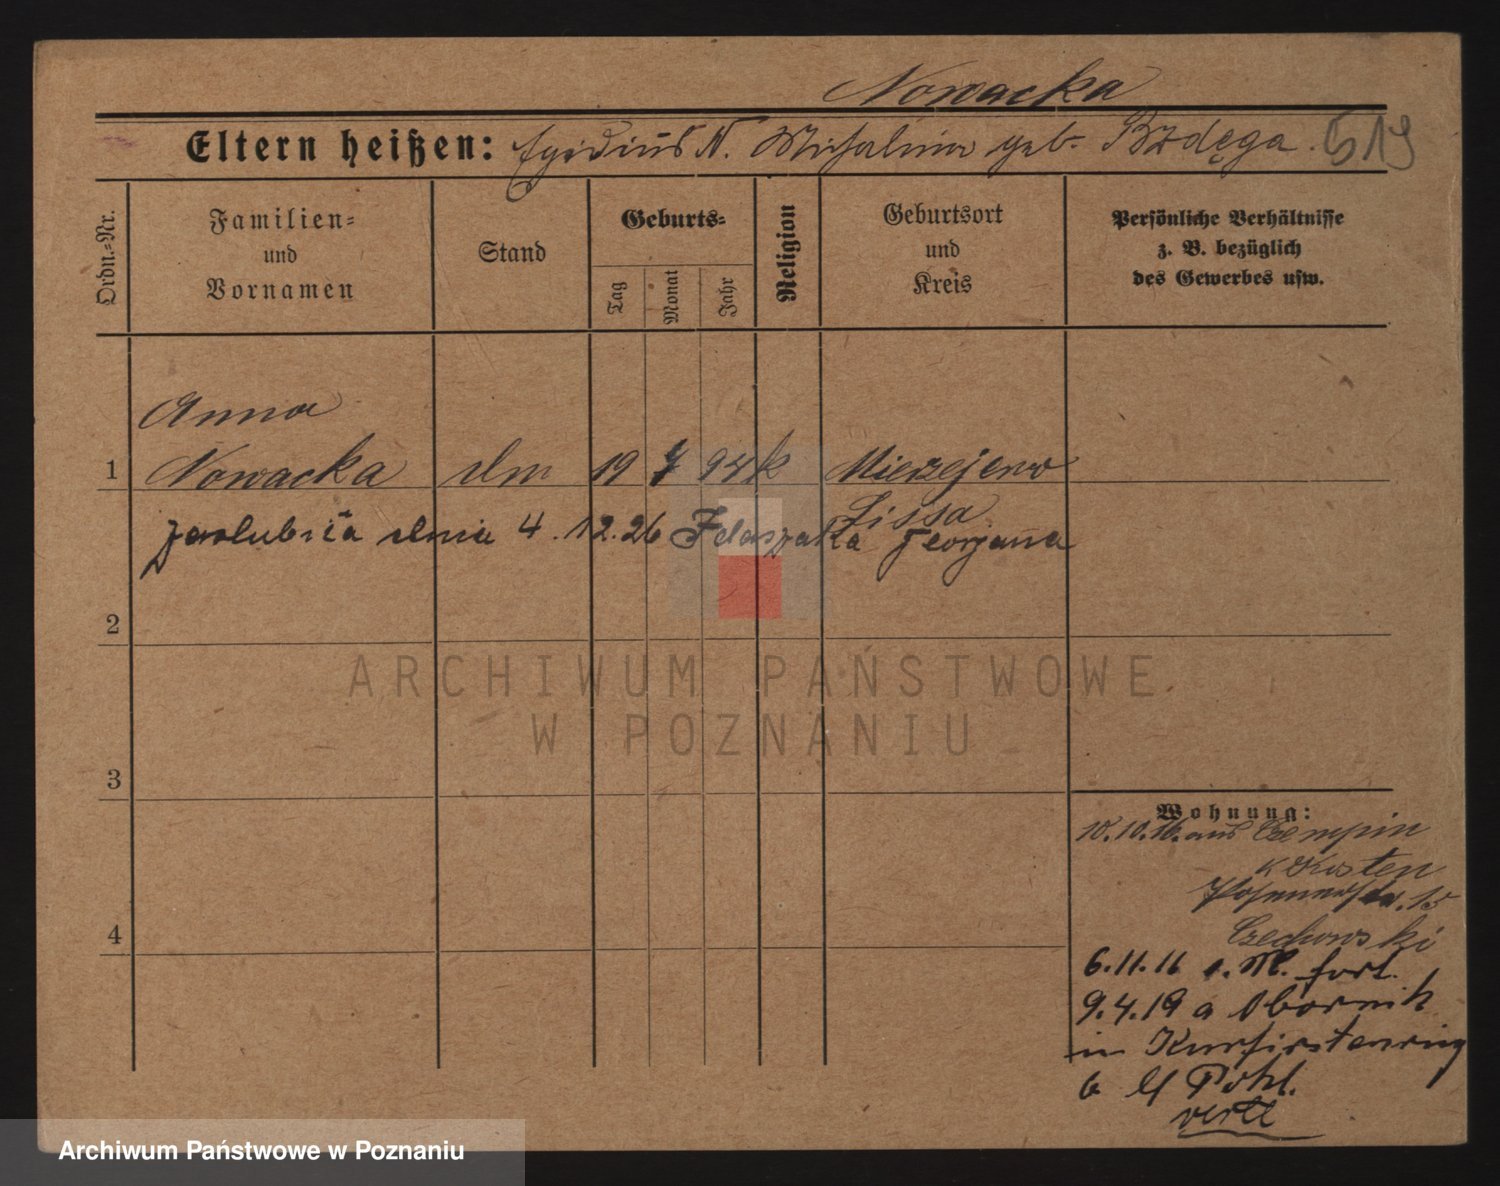 Nowacka
Eltern heißen: Egidius N. Michalina geb. Brdęga. 519
Ordn.-Nr.
Familien-
und
Vornamen
Stand
Geburts-
Tag
Monat
Jahr
Religion
Geburtsort
und
Kreis
Persönliche Verhältnisse
z. B. bezüglich
des Gewerbes usw.
Anna
1 Nowacka 19 94 k Mierzejewo
Lissa
zaślubiła dnia 4.12.26 Felaszaka
2
ARCHIWUM PAŃSTWOWE
W POZNANIU
3
Wohnung:
10.10.16. aus Czempin
K Kosten
15
Czechowski
4
6.11.16 fort.
9.4.19 a Obornik
in Kurfirstenring
6 Pohl.
verte
Archiwum Państwowe w Poznaniu